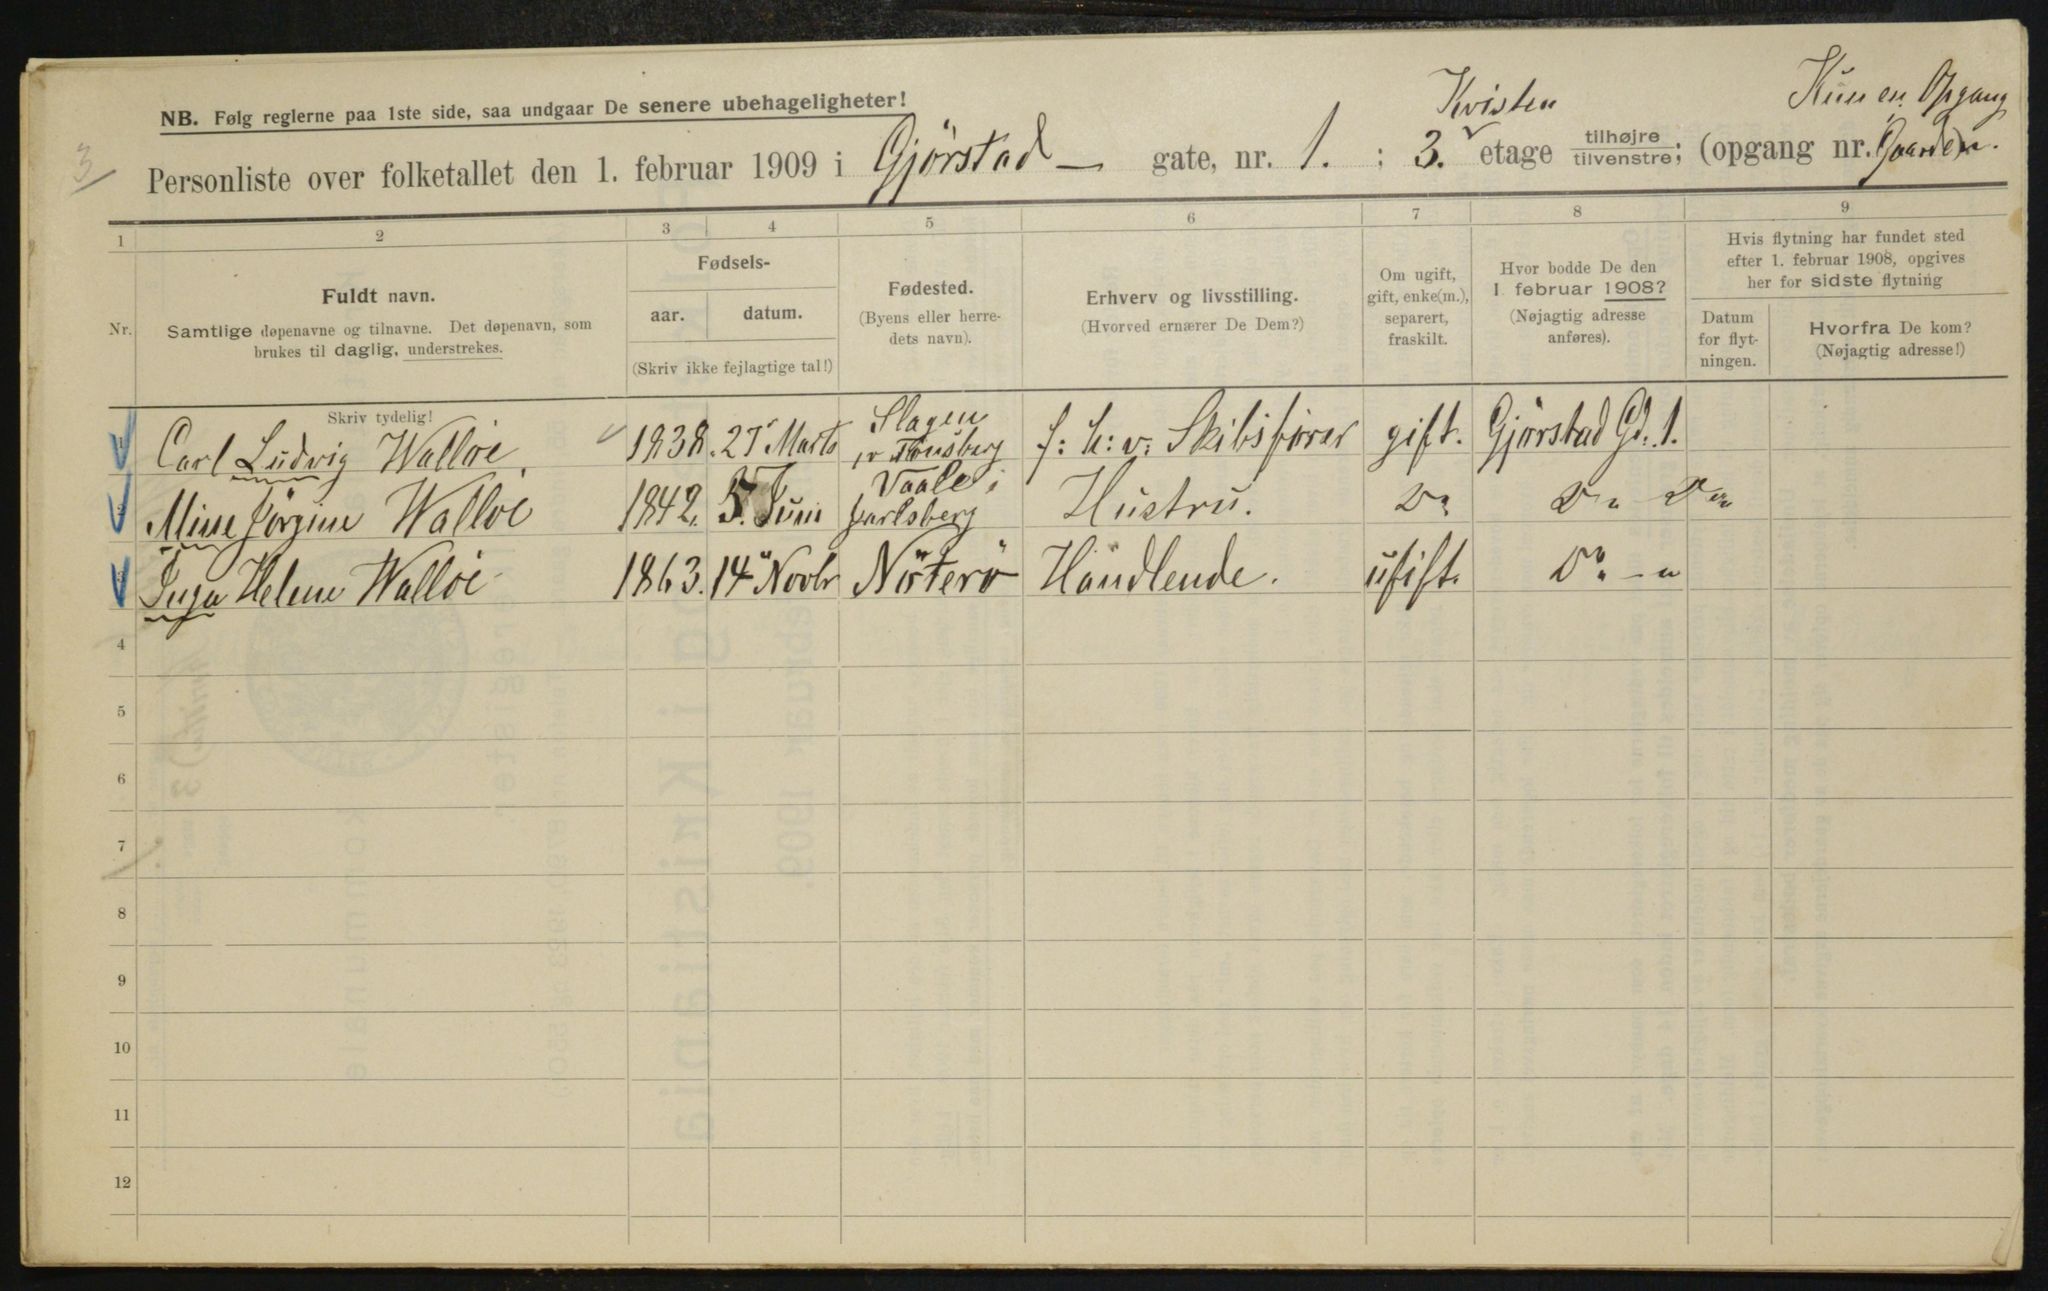 NB. Følg reglerne paa 1ste side, saa undgaar De senere ubehageligheter!
Kvisten
Kun en Opgang
3
Personliste over folketallet den 1. februar 1909 i Gjørstad — gate, nr. 1. : 3. etage tilhøjre / tilvenstre; (opgang nr. Gaarden).
1 2 3 4 5 6 7 8 9
Nr.
Fuldt navn.
Samtlige døpenavne og tilnavne. Det døpenavn, som
brukes til daglig, understrekes.
Fødsels-
aar. datum.
(Skriv ikke fejlagtige tal!)
Fødested.
(Byens eller herre-
dets navn).
Erhverv og livsstilling.
(Hvorved ernærer De Dem?)
Om ugift,
gift, enke(m.),
separert,
fraskilt.
Hvor bodde De den
1 februar 1908?
(Nøjagtig adresse
anføres).
Hvis flytning har fundet sted
efter 1. februar 1908, opgives
her for sidste flytning
Datum
for flyt-
ningen.
Hvorfra De kom?
(Nøjagtig adresse!)
Skriv tydelig!
1 Carl Ludvig Walløe 1838. 27 Marts Slagen pr Tønsberg f: h: v: Skibsfører gift. Gjørstad Gd. 1.
2 Mine Jørgine Walløe 1842. 5. Juni Vaale i Jarlsberg Hustru. Do Do Do
3 Inga Helene Walløe 1863. 14 Novbr Nöterö Handlende. ugift. Do - "
4
5
6
7
8
9
10
11
12